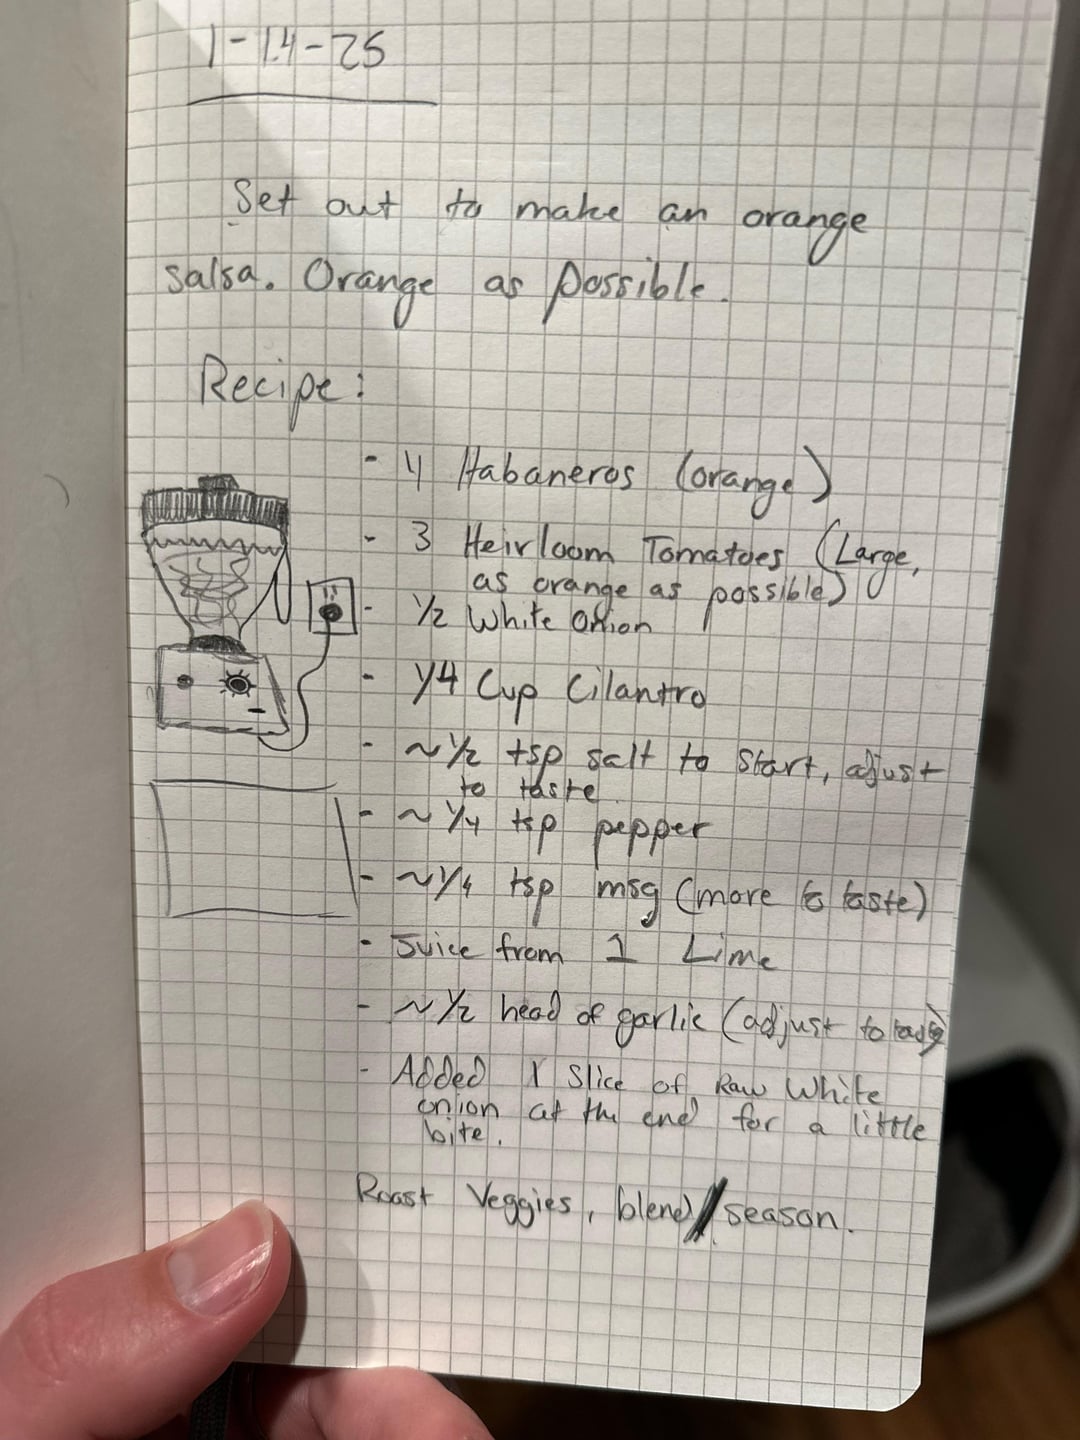 1-14-25
Set out to make an orange
salsa. Orange as possible.
Recipe:
- 4 Habaneros (orange)
- 3 Heirloom Tomatoes (Large,
as orange as possible)
- 1/2 White Onion
- 1/4 Cup Cilantro
- ~1/2 tsp salt to start, adjust
to taste.
- ~1/4 tsp pepper
- ~1/4 tsp msg (more to taste)
- Juice from 1 Lime
- ~1/2 head of garlic (adjust to taste)
- Added 1 slice of Raw White
onion at the end for a little
bite.
Roast Veggies, blend/season.